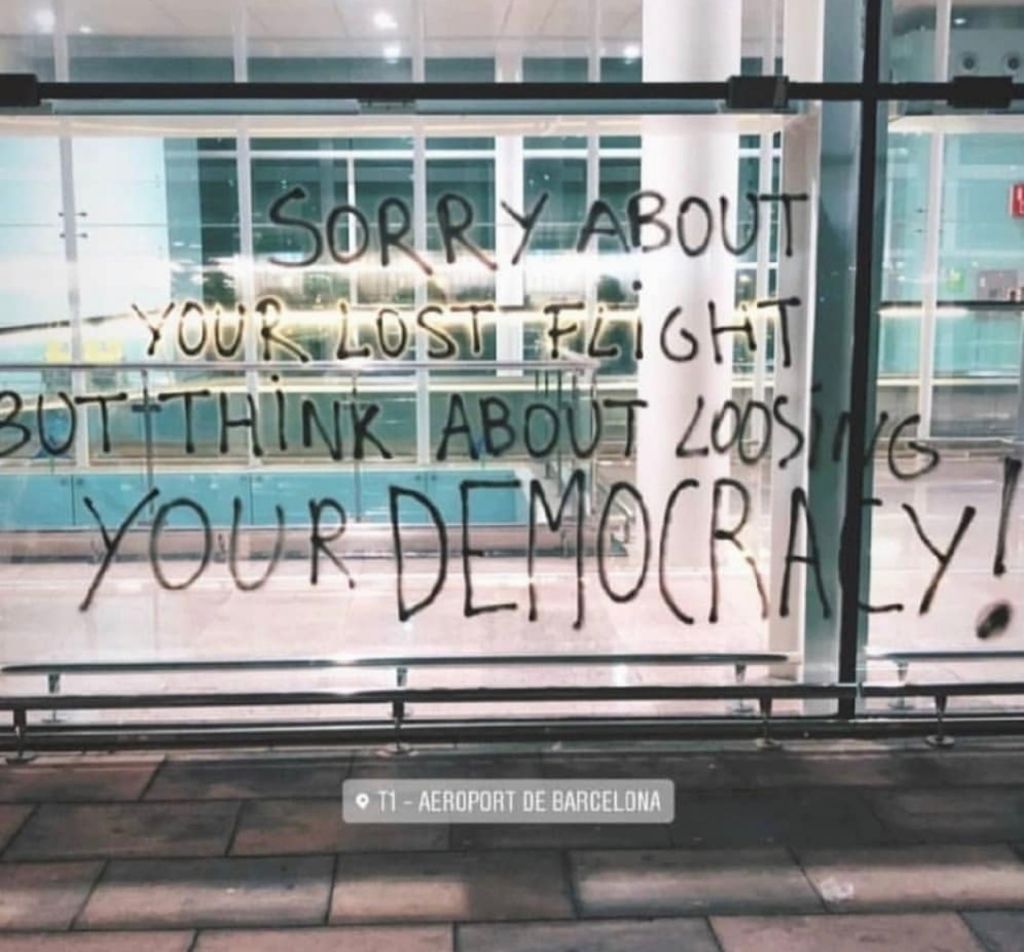 SORRY ABOUT
YOUR LOST FLiGHT
BUT THiNK ABOUT LOOSiNG
YOUR DEMOCRACY!
T1 - AEROPORT DE BARCELONA